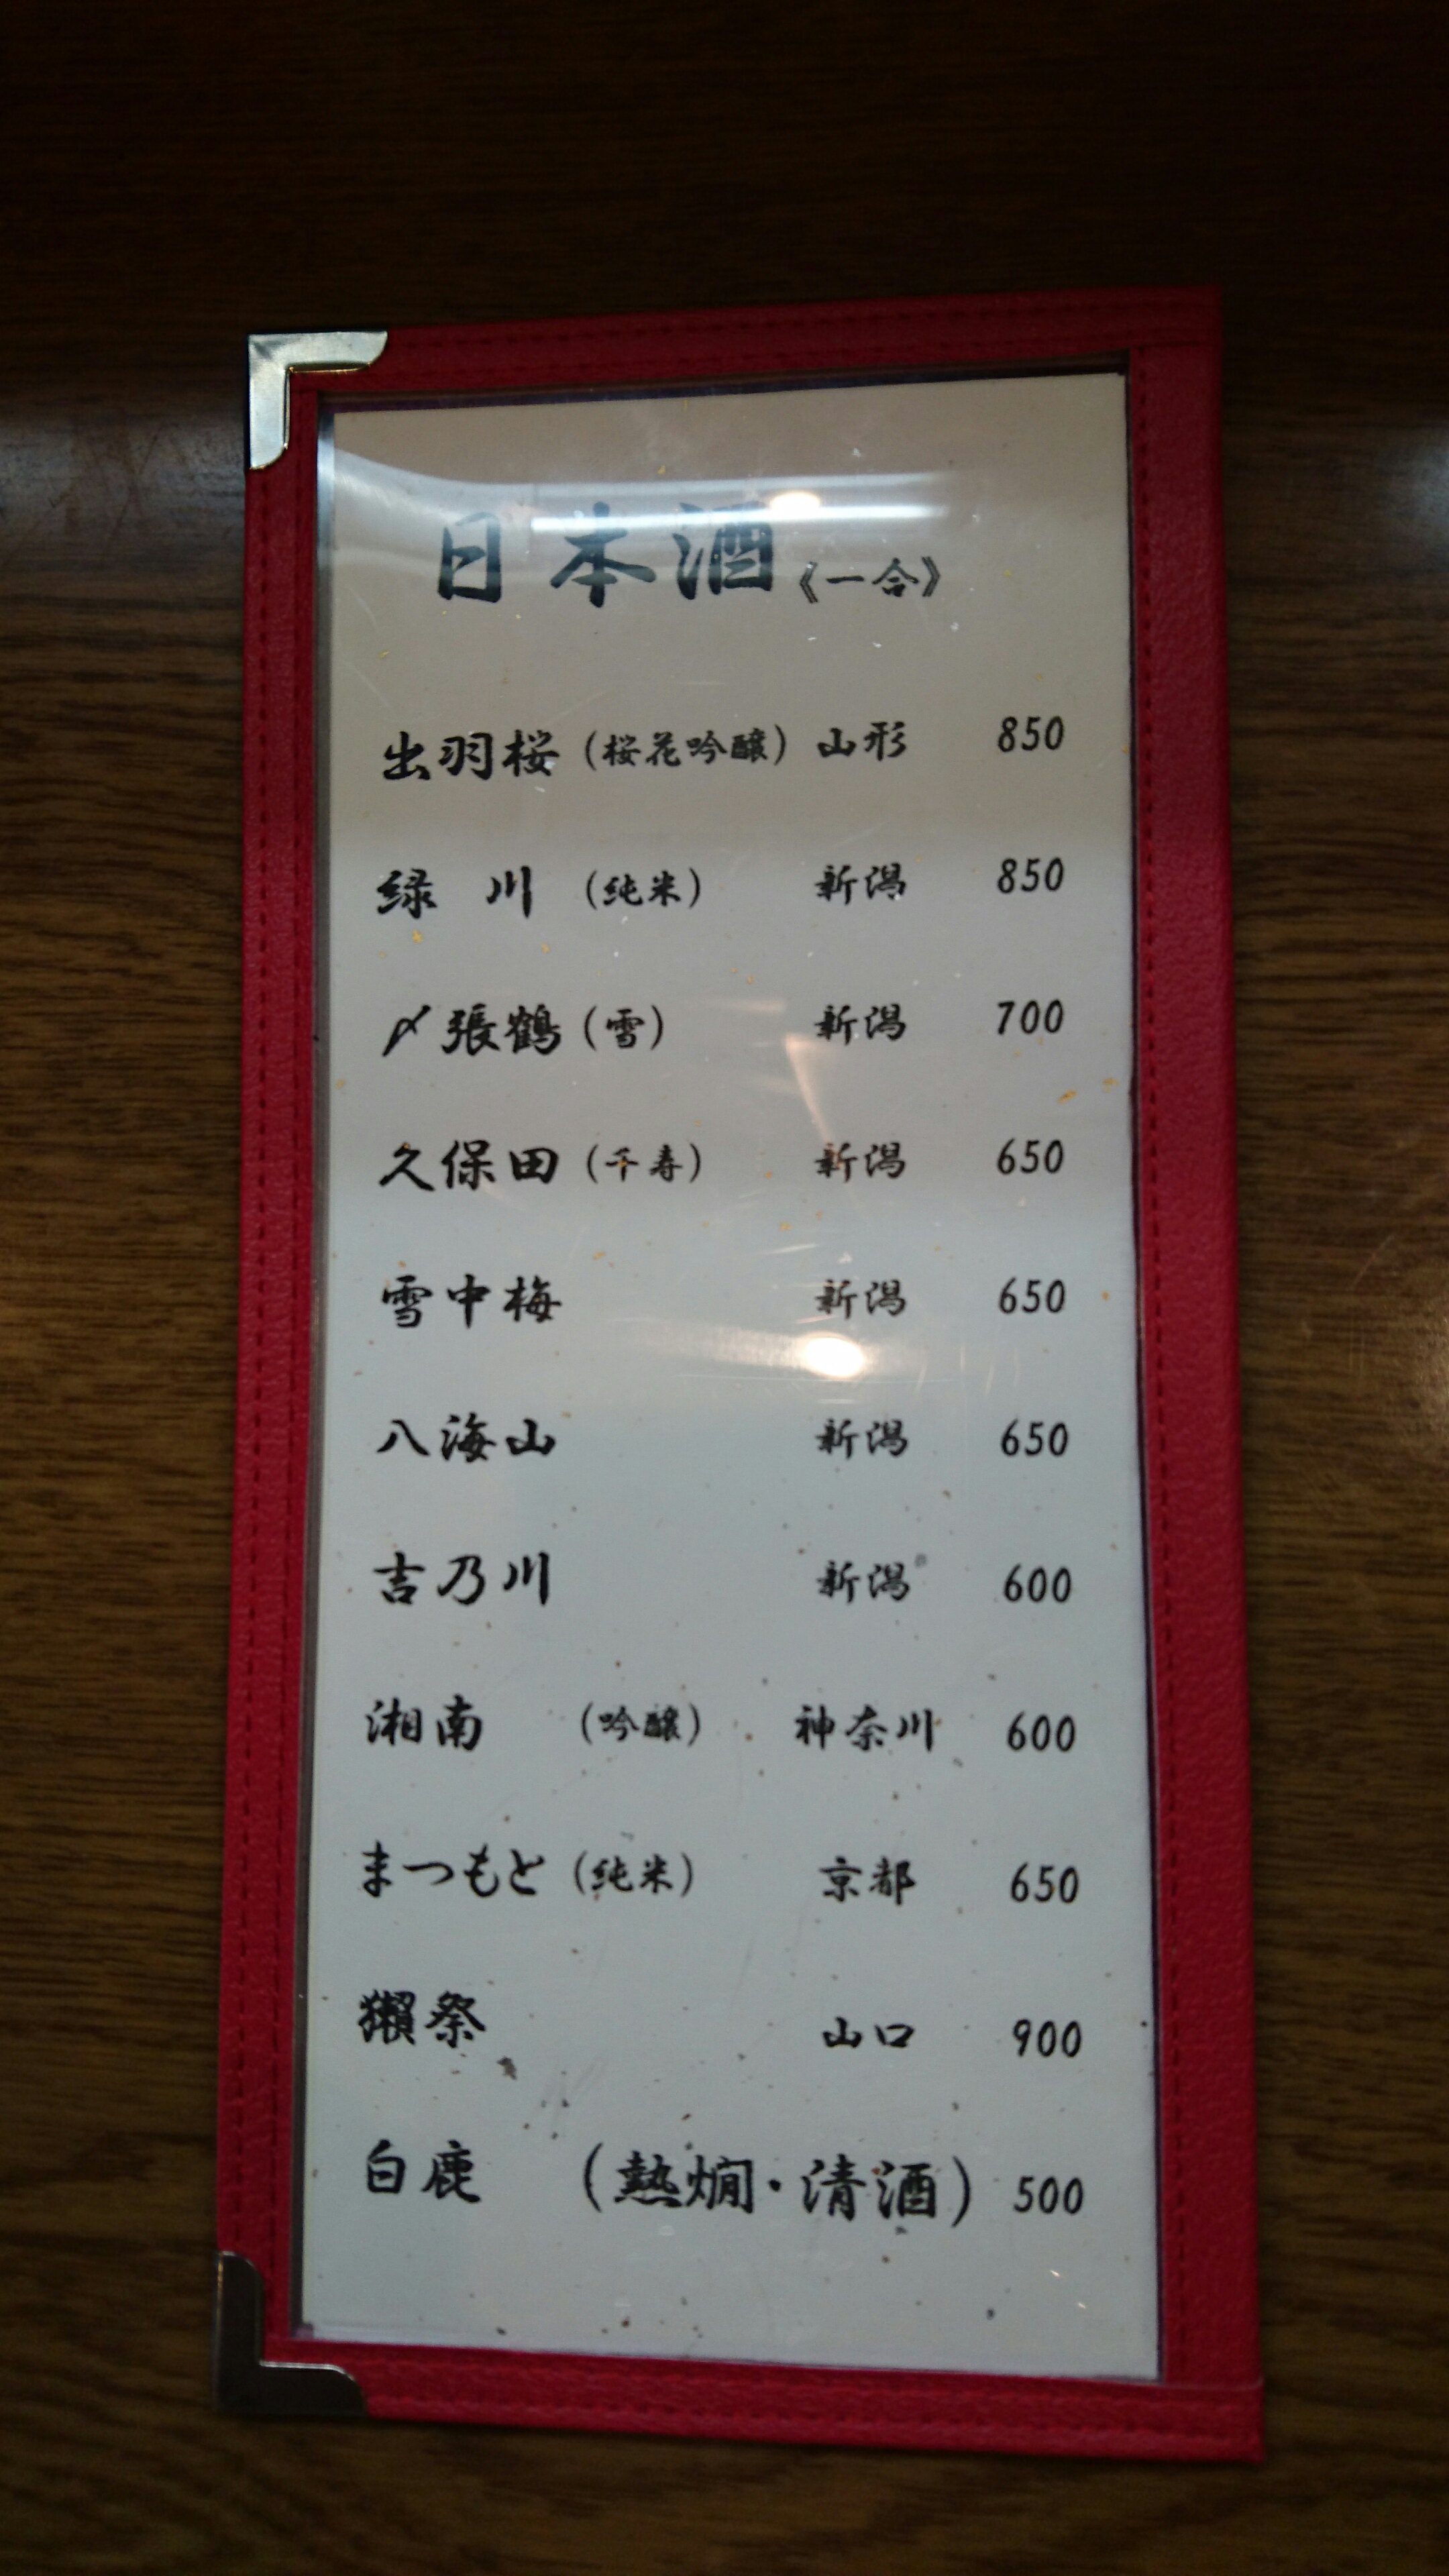 日本酒《一合》
出羽桜（桜花吟醸）山形 850
緑 川（純米） 新潟 850
〆張鶴（雪） 新潟 700
久保田（千寿） 新潟 650
雪中梅 新潟 650
八海山 新潟 650
吉乃川 新潟 600
湘南 （吟醸） 神奈川 600
まつもと（純米） 京都 650
獺祭 山口 900
白鹿 （熱燗・清酒） 500